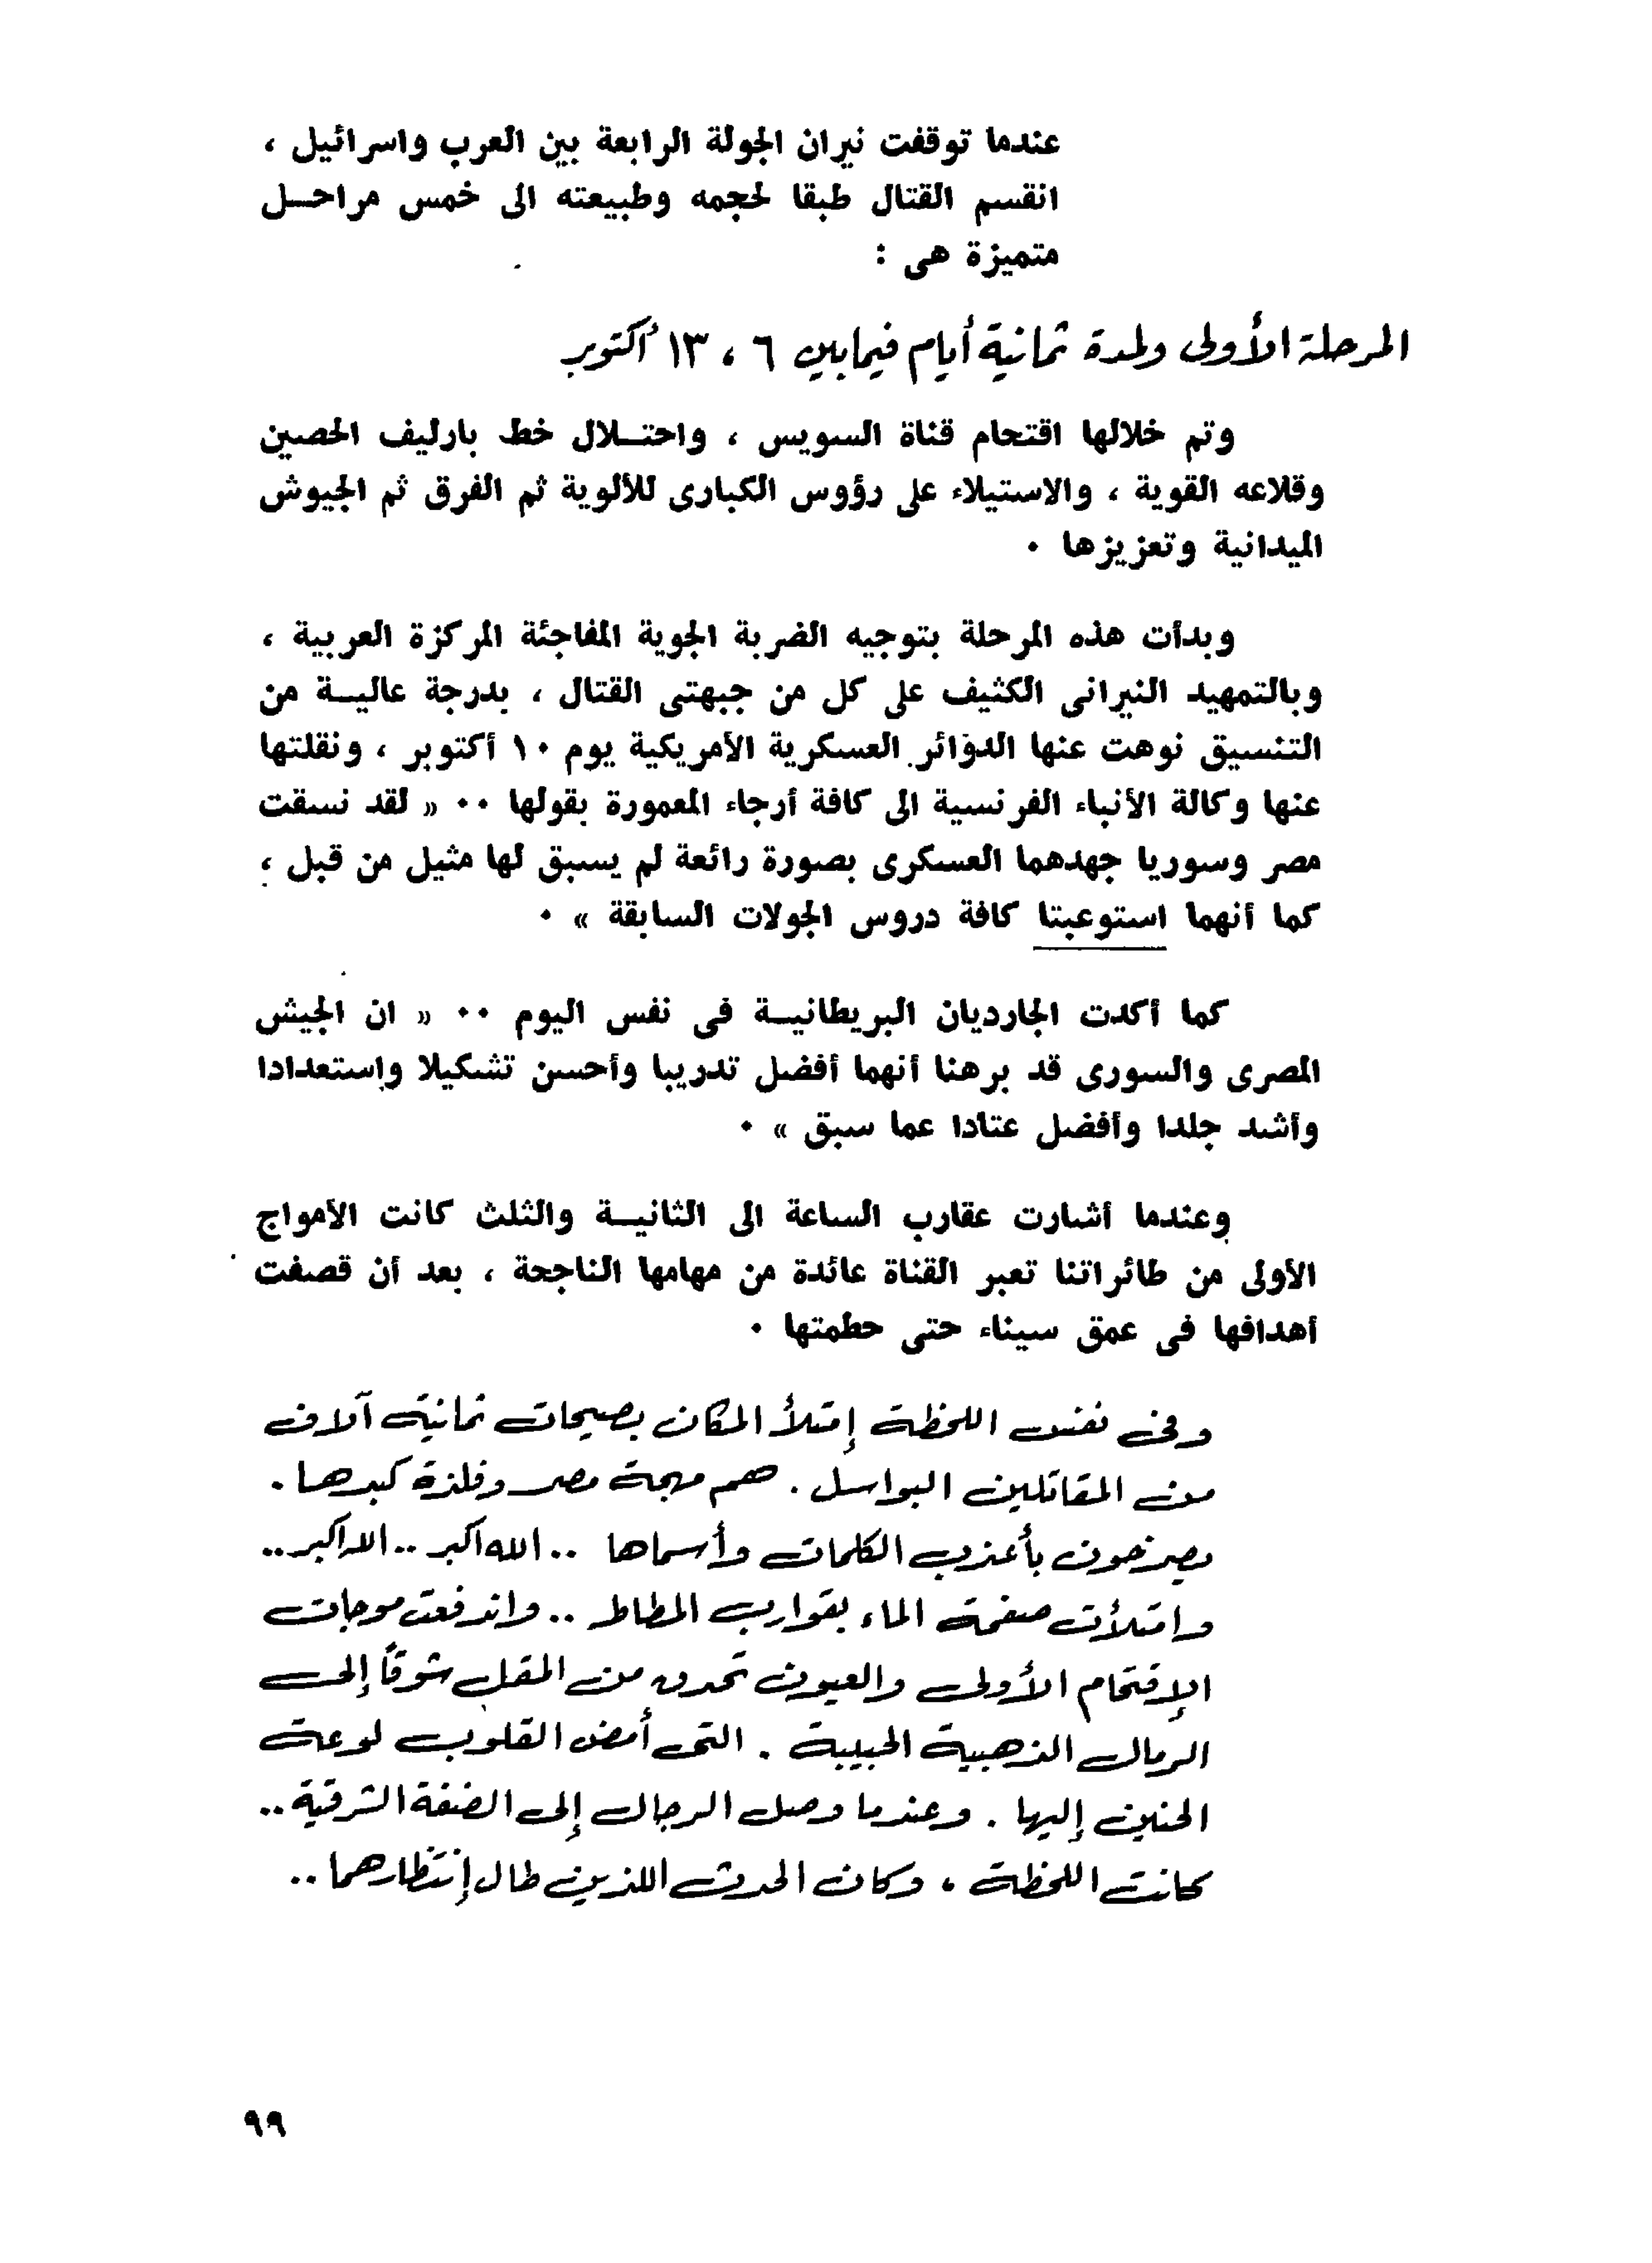 عندما توقفت نيران الجولة الرابعة بين العرب واسرائيل ،
انقسم القتال طبقا لحجمه وطبيعته الى خمس مراحـل
متميزة هى :
المرحلة الأولى ولمدة ثمانية أيام فيما بين ٦ ، ١٣ أكتوبر
وتم خلالها اقتحام قناة السويس ، واحتـلال خط بارليف الحصين
وقلاعه القوية ، والاستيلاء على رؤوس الكبارى للألوية ثم الفرق ثم الجيوش
الميدانية وتعزيزها ٠
وبدأت هذه المرحلة بتوجيه الضربة الجوية المفاجئة المركزة العربية ،
وبالتمهيد النيرانى الكثيف على كل من جبهتى القتال ، بدرجة عاليـة من
التنسيق نوهت عنها الدوائر العسكرية الأمريكية يوم ١٠ أكتوبر ، ونقلتها
عنها وكالة الأنباء الفرنسية الى كافة أرجاء المعمورة بقولها ٠٠ « لقد نسقت
مصر وسوريا جهدهما العسكرى بصورة رائعة لم يسبق لها مثيل من قبل ،
كما أنهما استوعبتا كافة دروس الجولات السابقة » ٠
كما أكدت الجارديان البريطانيـة فى نفس اليوم ٠٠ « ان الجيش
المصرى والسورى قد برهنا أنهما أفضل تدريبا وأحسن تشكيلا وإستعدادا
وأشد جلدا وأفضل عتادا عما سبق » ٠
وعندما أشارت عقارب الساعة الى الثانيـة والثلث كانت الأمواج
الأولى من طائراتنا تعبر القناة عائدة من مهامها الناجحة ، بعد أن قصفت
أهدافها فى عمق سيناء حتى حطمتها ٠
وفى نفس اللحظة إمتلأ المكان بصيحات ثمانية آلاف
من المقاتلين البواسل . هم مهجة مصر وفلذة كبدها .
يصرخون بأعذب الكلمات وأسماها .. الله أكبر .. الله أكبر ..
وامتلأت صفحة الماء بقوارب المطاط .. واندفعت موجات
الإقتحام الأولى والعيون تحدق من المقل شوقاً إلى
الرمال الذهبية الحبيبة . التى أمض القلوب لوعة
الحنين إليها . وعندما وصل الرجال إلى الضفة الشرقية ..
كانت اللحظة ، وكان الحدث اللذين طال إنتظارهما ..
٩٩